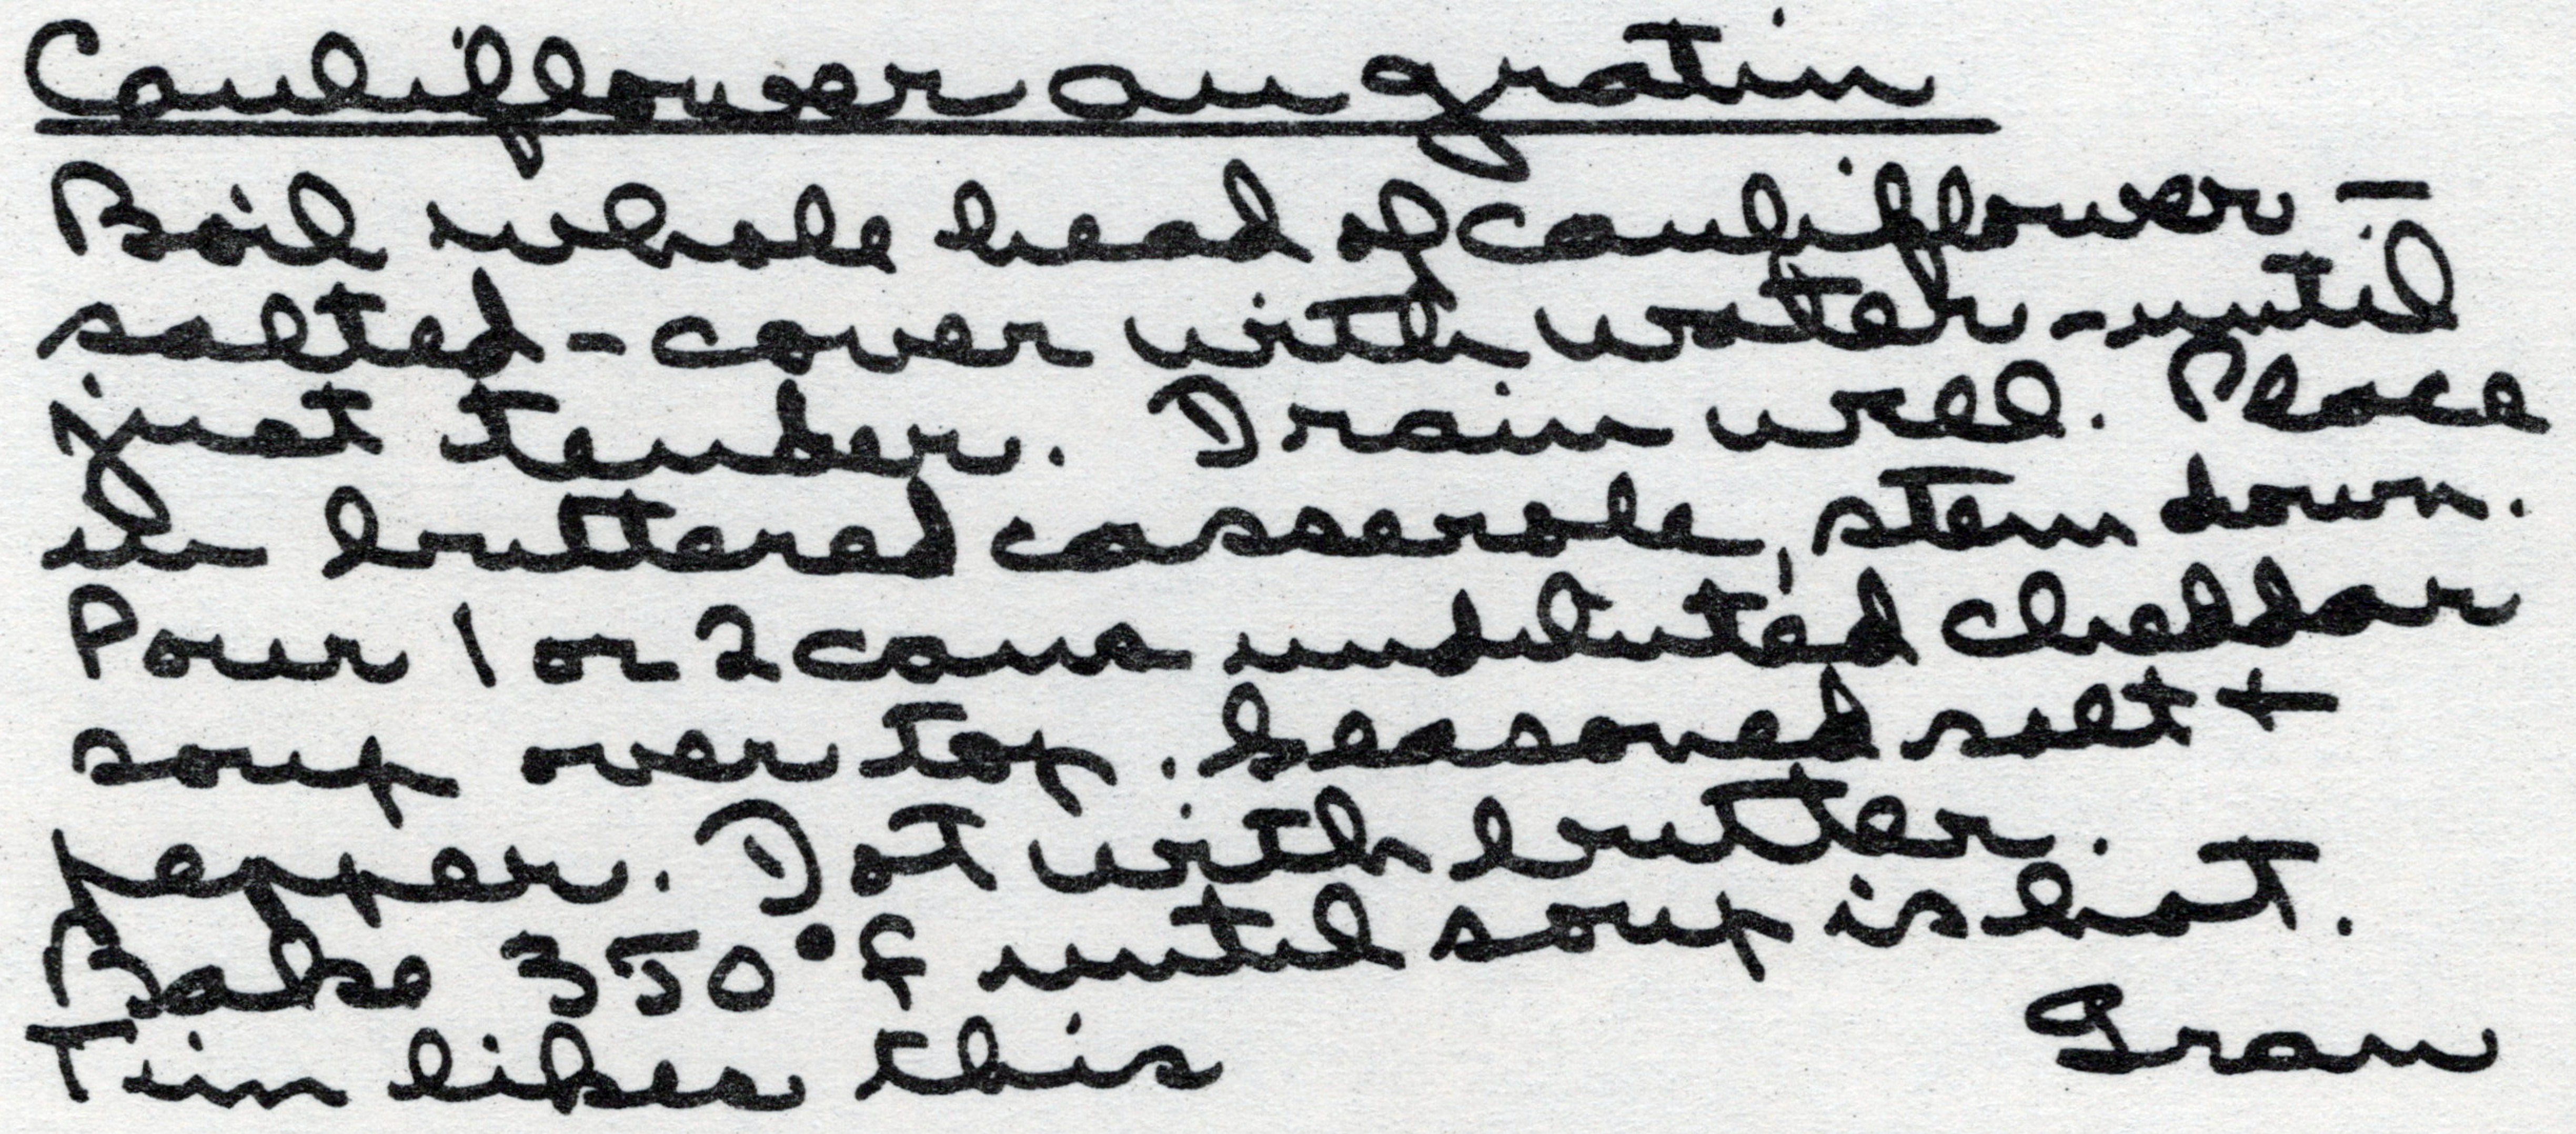 Cauliflower au gratin
Boil whole head of cauliflower –
salted - cover with water - until
just tender. Drain well. Place
in buttered casserole, stem down.
Pour 1 or 2 cans undiluted cheddar
soup over top. Seasoned salt +
pepper. Dot with butter.
Bake 350°f until soup is hot.
Gran
Tim likes this